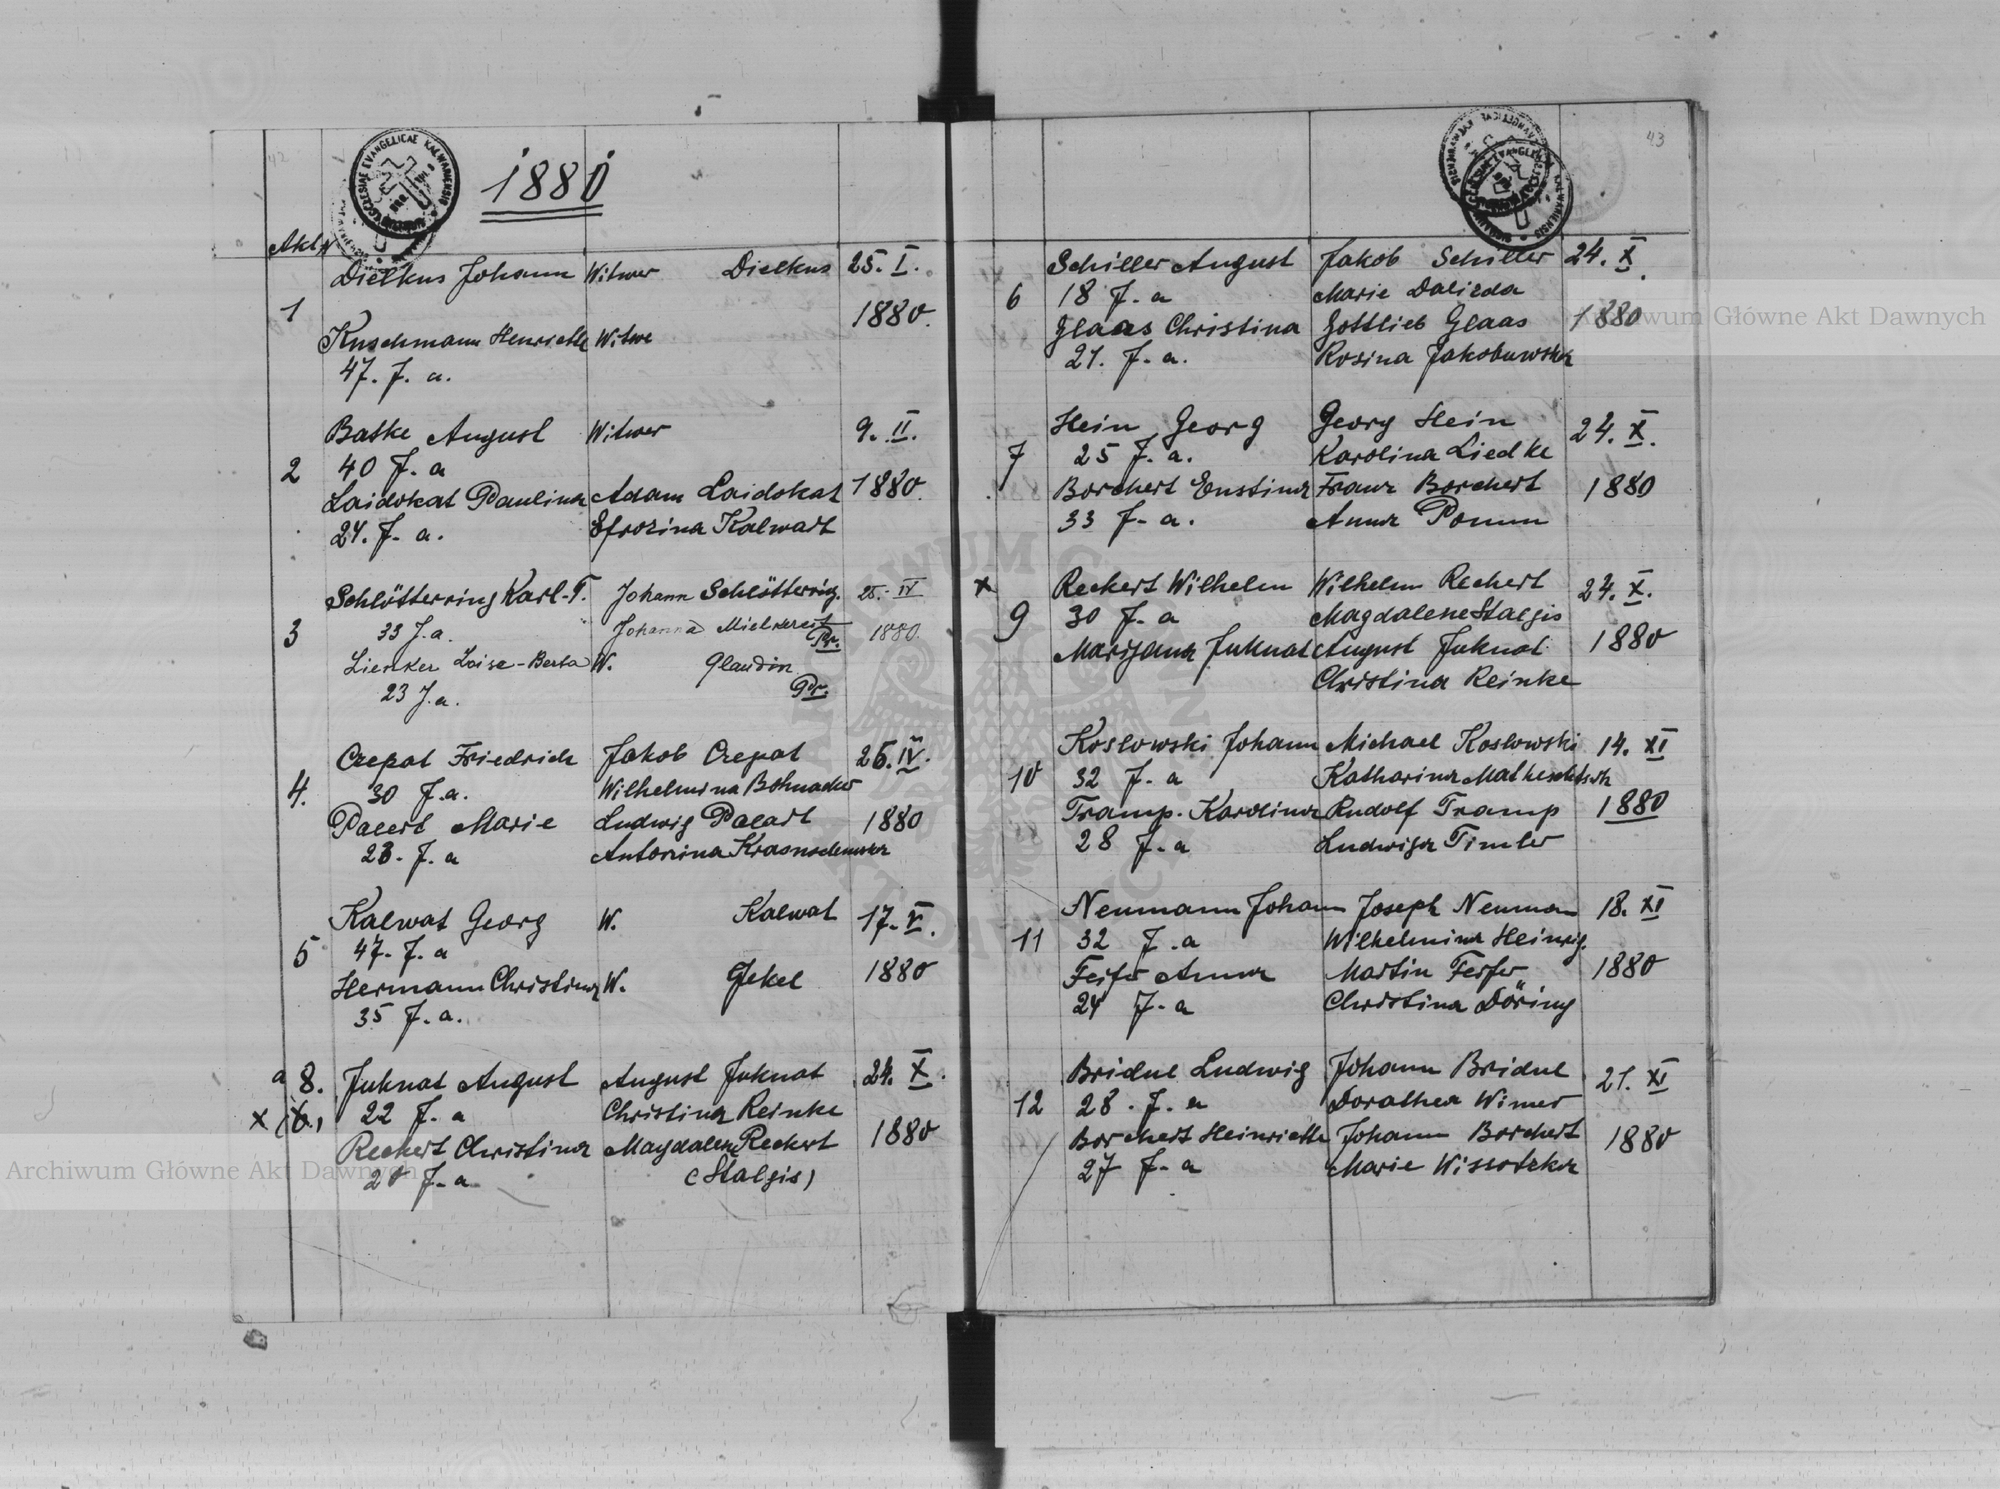 42
1880
Akt N
Dielkus Johann Witwer Dielkus 25. I.
1 1880.
Kuschmann Henriette Witwe
47. J. a.
Baske August Witwer 9. II.
2 40 J. a
Laidokat Paulina Adam Laidokat 1880.
24. J. a. Efrozina Kalwart
Schlötterring Karl-T. Johann Schlötterring. 25. IV
3 33 J. a. Johanna Mielkereit Pr. 1880.
Lienker Loise-Berta W. Glaudin
23 J. a. Pr.
Czepat Friedrich Jakob Czepat 26. IV.
4. 30 J. a. Wilhelmina Bohnacker
Paeert Marie Ludwig Paeart 1880
23. J. a Antonina
Kalwat Georg W. Kalwat 17. V.
5 47. J. a
Hermann Christina W. Jekel 1880
35 J. a.
a 8. Juknat August August Juknat 24. X.
x (6.) 22 J. a Christina Reinke
Reckert Christina Magdalena Reckert 1880
20 J. a (Stalgis)
43
Schiller August Jakob Schiller 24. X.
6 18 J. a Marie Dalizda
Glaas Christina Gottlieb Glaas 1880
21. J. a. Rosina Jakobowska
Hein Georg Georg Hein 24. X.
7 25 J. a. Karolina Liedke
Borchert Ernstina Franz Borchert 1880
33 J. a. Anna Pomm
x Reckert Wilhelm Wilhelm Reckert 24. X.
9 30 J. a Magdalene Stalgis
Marijana Juknat August Juknat 1880
Christina Reinke
Koslowski Johann Michael Koslowski 14. XI
10 32 J. a Katharina
Tramp. Karolina Rudolf Tramp 1880
28 J. a Ludwiga Timler
Neumann Johann Joseph Neuman 18. XI
11 32 J. a Wilhelmina Heinrig.
Feifer Anna Martin Feifer 1880
24 J. a Christina Döring
Bridul Ludwig Johann Bridul 21. XI
12 28. J. a Dorathea Wimer
Borchert Heinriette Johann Borchert 1880
27 J. a Marie Wissotzka
Archiwum Główne Akt Dawnych
Archiwum Główne Akt Dawnych